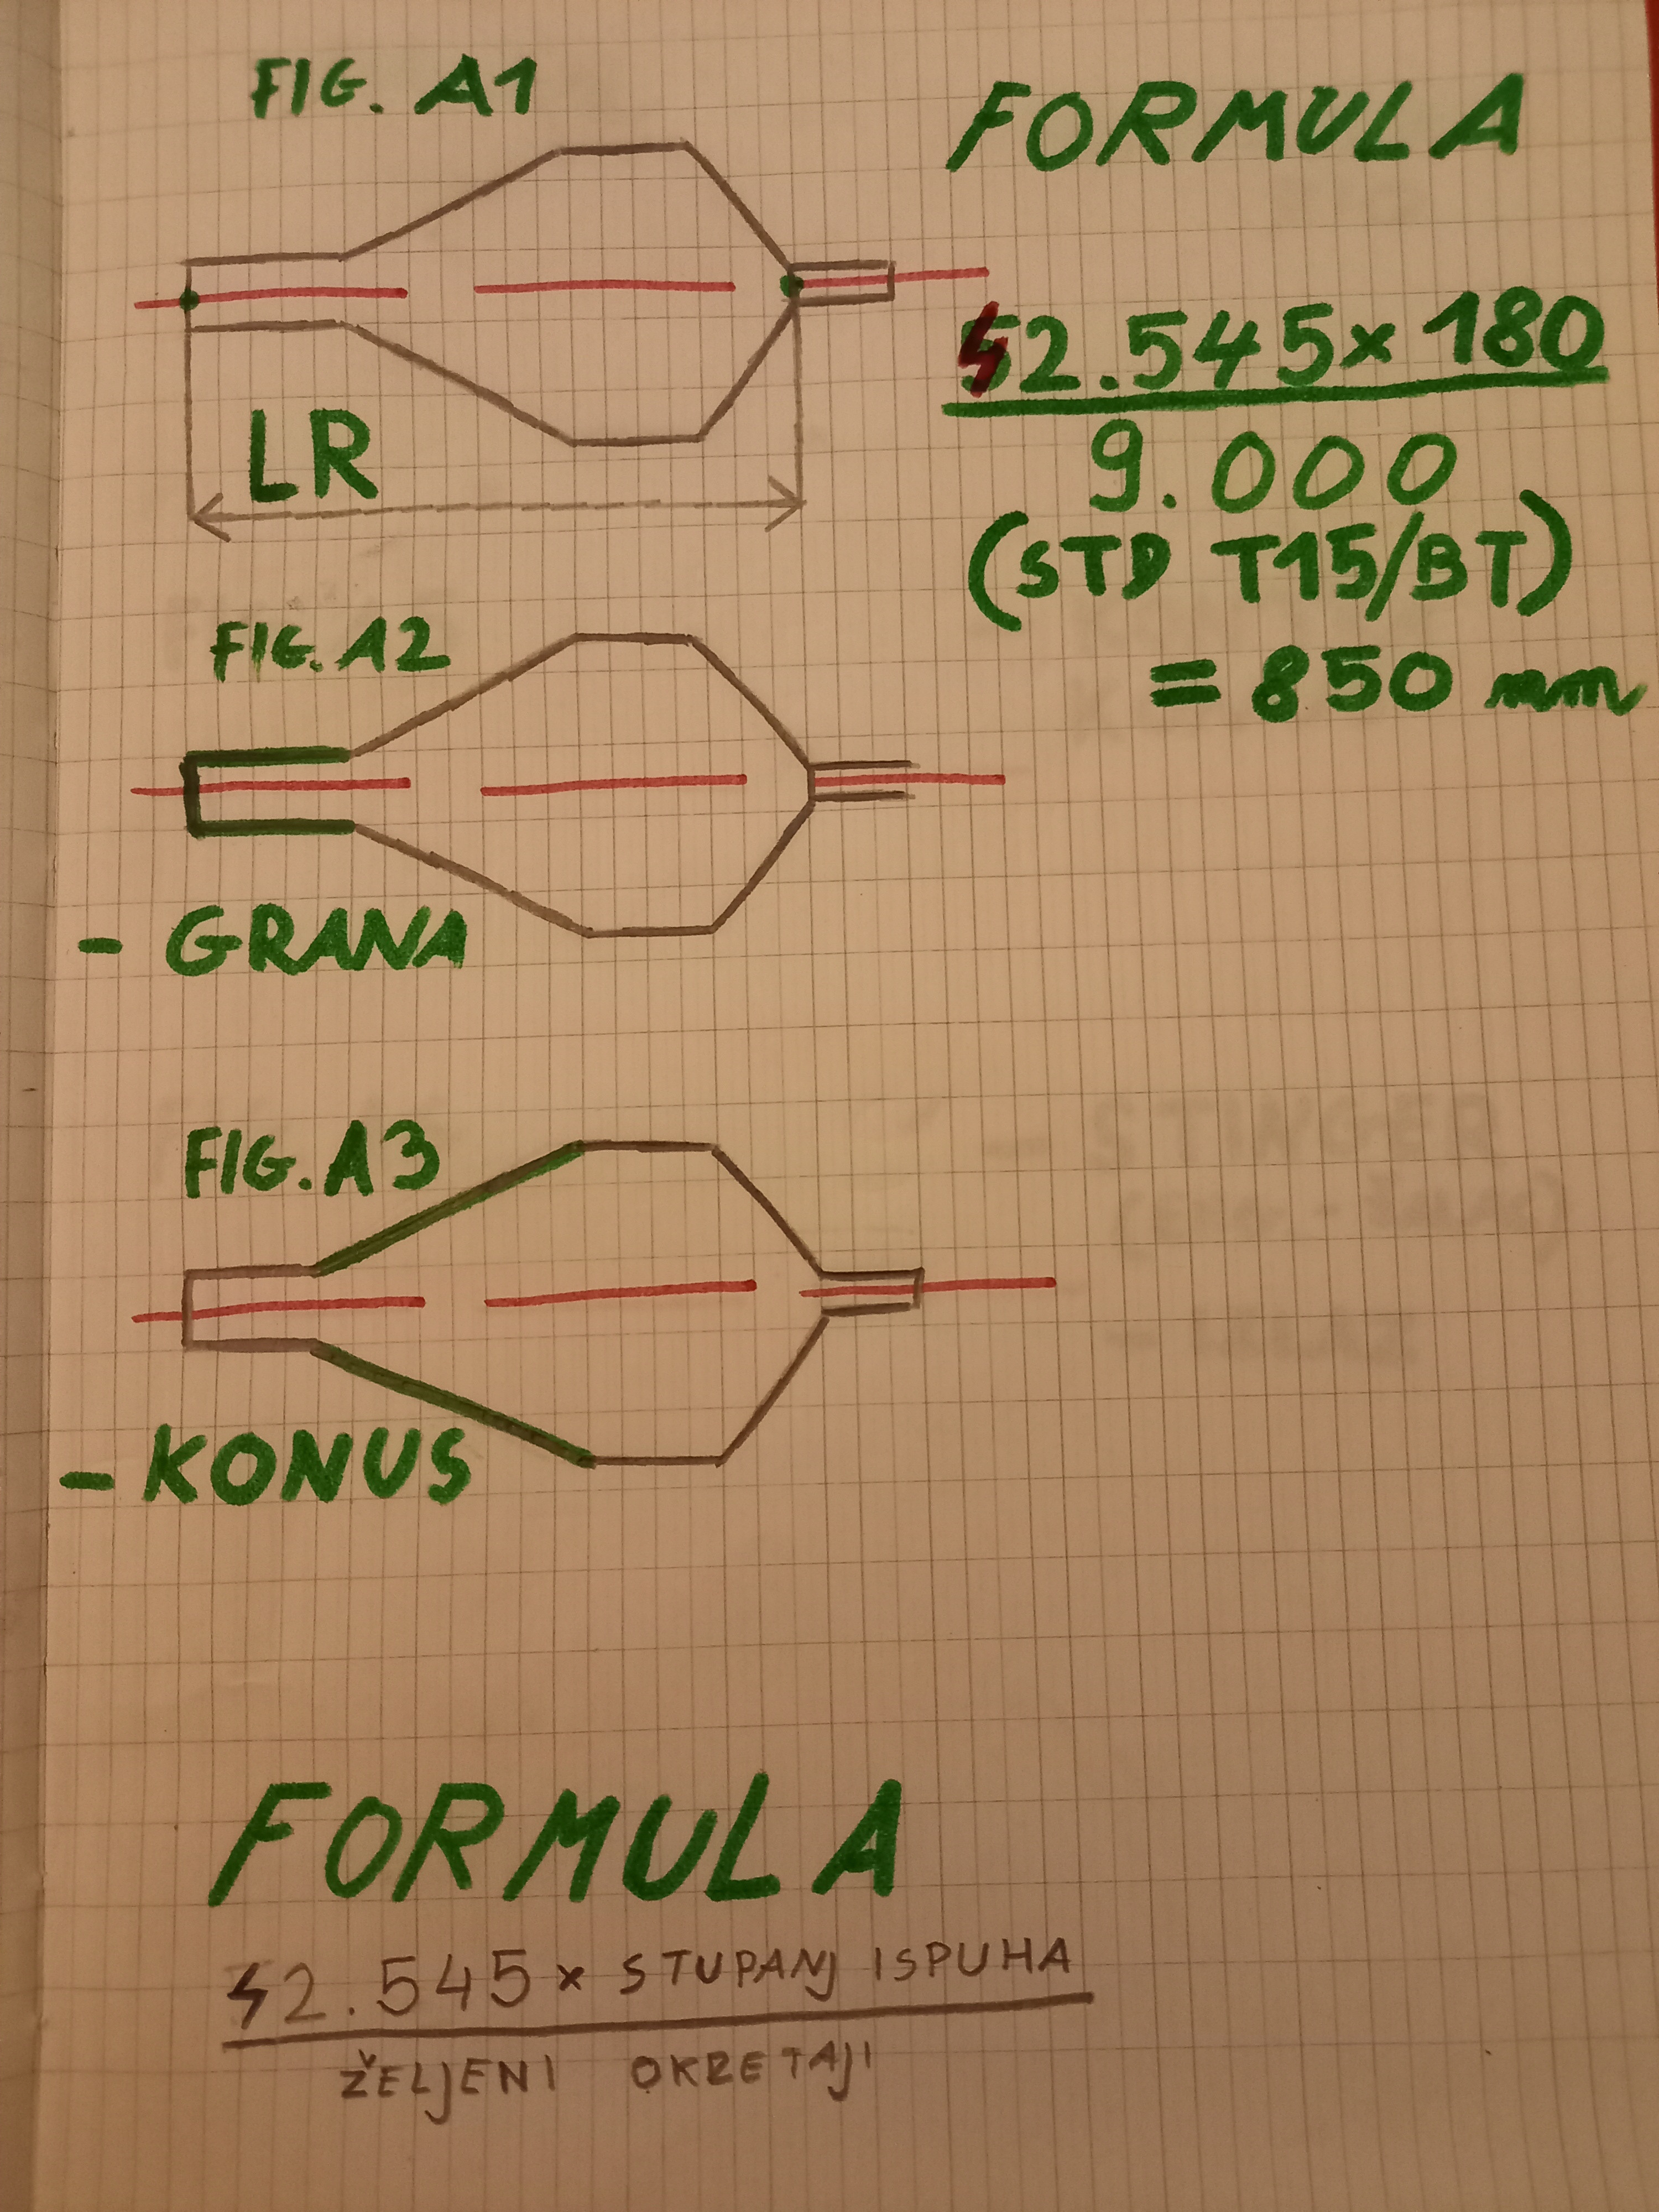 FIG. A1
FORMULA
42.545 x 180
9.000
(STD T15/BT)
= 850 mm
LR
FIG. A2
- GRANA
FIG. A3
- KONUS
FORMULA
42.545 x STUPANJ ISPUHA
ŽELJENI OKRETAJI